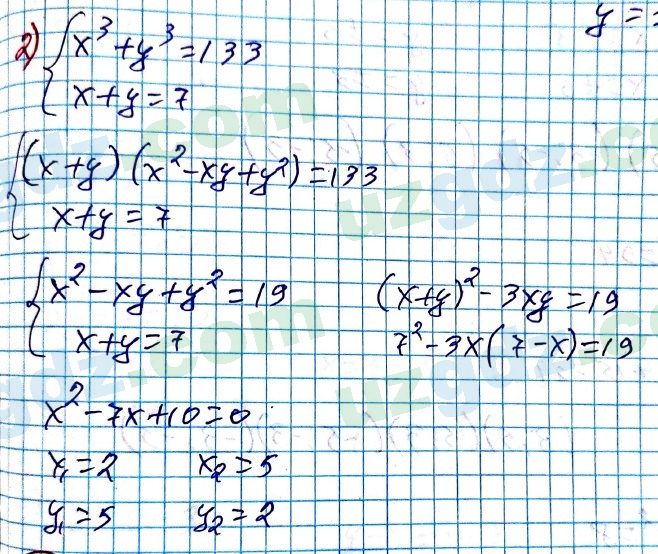 y =
2) { x³ + y³ = 133
x + y = 7
{ (x + y) (x² - xy + y²) = 133
x + y = 7
{ x² - xy + y² = 19 (x + y)² - 3xy = 19
x + y = 7 7² - 3x(7 - x) = 19
x² - 7x + 10 = 0
x₁ = 2 x₂ = 5
y₁ = 5 y₂ = 2
uzgdz.com